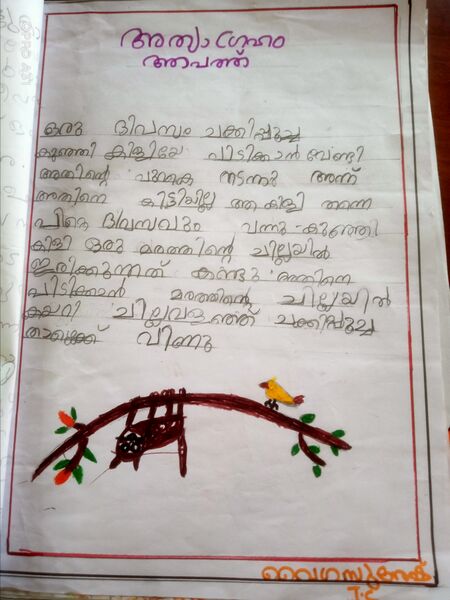 അത്യാഗ്രഹം
ആപത്ത്
ഒരു ദിവസം ചക്കിപ്പൂച്ച
കുഞ്ഞി കിളിയെ പിടിക്കാൻ വേണ്ടി
അതിന്റെ പുറകെ നടന്നു അന്ന്
അതിനെ കിട്ടിയില്ല ആ കിളി തന്നെ
പിറ്റെ ദിവസവും വന്നു കുഞ്ഞി
കിളി ഒരു മരത്തിന്റെ ചില്ലയിൽ
ഇരിക്കുന്നത് കണ്ടു അതിനെ
പിടിക്കാൻ മരത്തിന്റെ ചില്ലയിൽ
കയറി ചില്ലവളഞ്ഞ് ചക്കിപ്പൂച്ച
താഴേക്ക് വീണു
വൈഗ